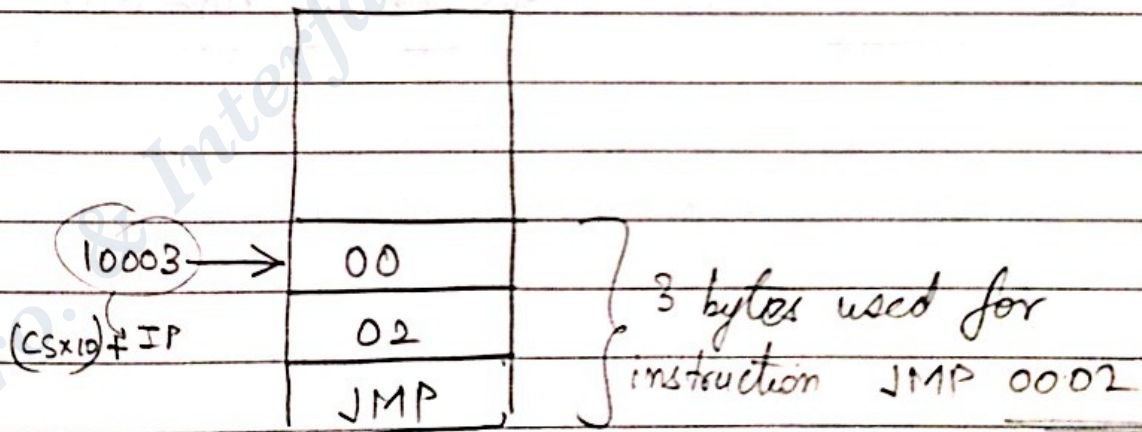 & Interfa
10003 → 00
(CS×10) + IP 02
JMP
3 bytes used for
instruction JMP 0002